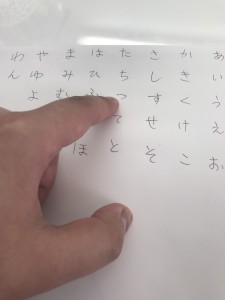 あいうえお
かきくけこ
さしすせそ
たちつてと
はひふほ
まみむ
やゆよ
わん